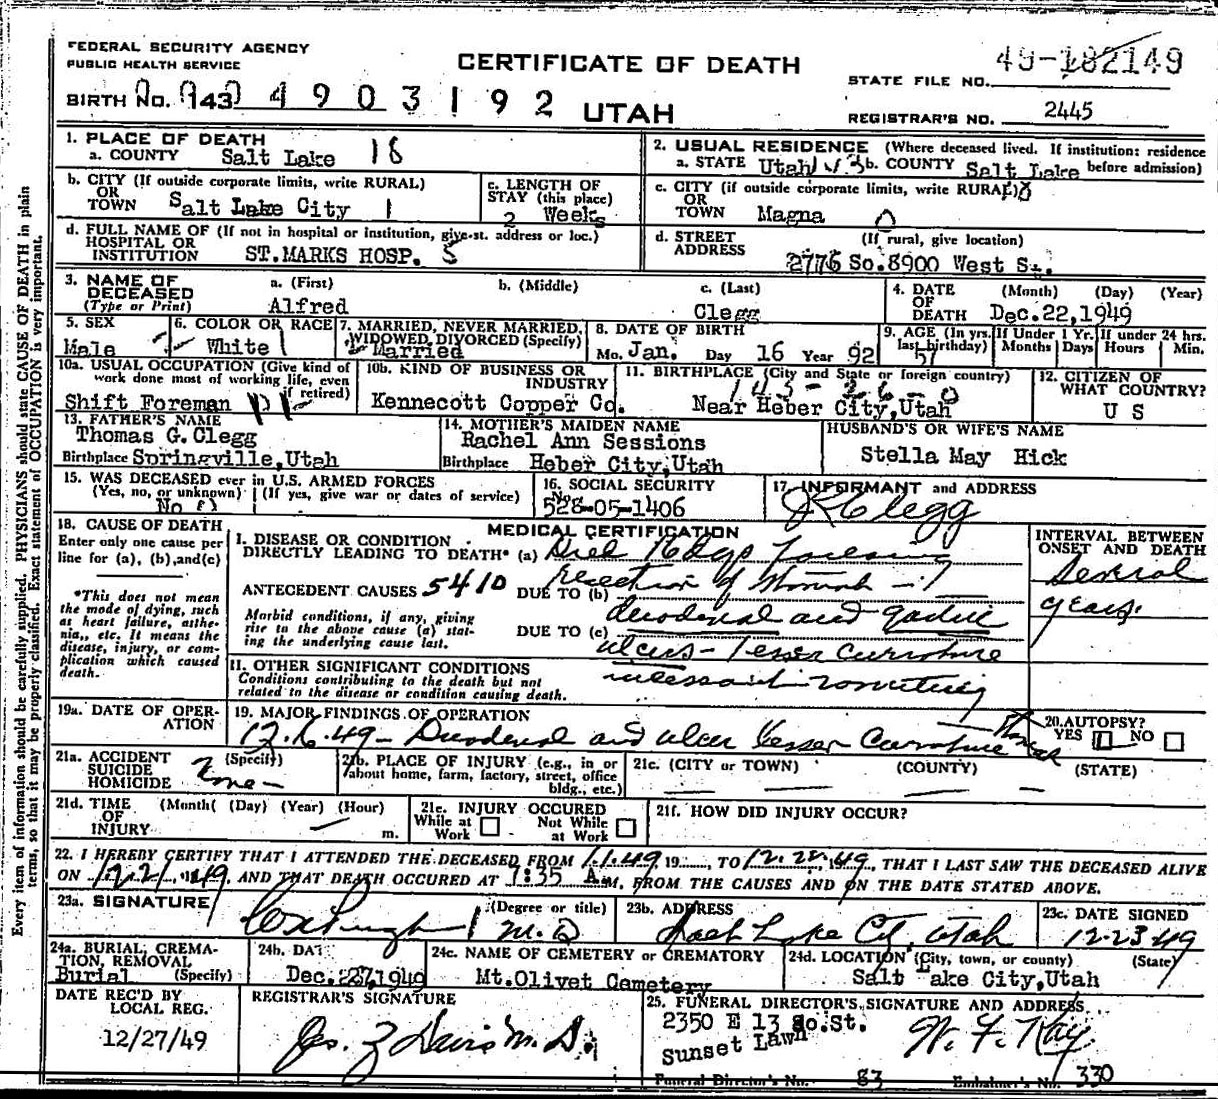 FEDERAL SECURITY AGENCY
PUBLIC HEALTH SERVICE
CERTIFICATE OF DEATH
49-182149
STATE FILE NO.
BIRTH NO. 143 4903192 UTAH
REGISTRAR'S NO. 2445
1. PLACE OF DEATH
a. COUNTY Salt Lake 18
2. USUAL RESIDENCE (Where deceased lived. If institution: residence before admission)
a. STATE Utah b. COUNTY Salt Lake
b. CITY (If outside corporate limits, write RURAL) OR TOWN Salt Lake City 1
c. LENGTH OF STAY (this place) 2 Weeks
c. CITY (if outside corporate limits, write RURAL) OR TOWN Magna 0
d. FULL NAME OF (If not in hospital or institution, give st. address or loc.) HOSPITAL OR INSTITUTION ST.MARKS HOSP. 5
d. STREET ADDRESS (If rural, give location) 2776 So.8900 West St.
3. NAME OF DECEASED (Type or Print) a. (First) b. (Middle) c. (Last)
Alfred Clegg
4. DATE OF DEATH (Month) (Day) (Year) Dec.22,1949
5. SEX Male
6. COLOR OR RACE White 1
7. MARRIED, NEVER MARRIED, WIDOWED, DIVORCED (Specify) Married
8. DATE OF BIRTH Mo. Jan. Day 16 Year 92
9. AGE (In yrs. last birthday) 57 If Under 1 Yr. Months Days If under 24 hrs. Hours Min.
10a. USUAL OCCUPATION (Give kind of work done most of working life, even if retired) Shift Foreman
10b. KIND OF BUSINESS OR INDUSTRY Kennecott Copper Co.
11. BIRTHPLACE (City and State or foreign country) Near Heber City,Utah
12. CITIZEN OF WHAT COUNTRY? U S
13. FATHER'S NAME Thomas G.Clegg
Birthplace Springville,Utah
14. MOTHER'S MAIDEN NAME Rachel Ann Sessions
Birthplace Heber City,Utah
HUSBAND'S OR WIFE'S NAME Stella May Hick
15. WAS DECEASED ever in U.S. ARMED FORCES (Yes, no, or unknown) (If yes, give war or dates of service) No
16. SOCIAL SECURITY No. 528-05-1406
17. INFORMANT and ADDRESS Clegg
18. CAUSE OF DEATH
Enter only one cause per line for (a), (b),and(c)
*This does not mean the mode of dying, such as heart failure, asthenia,, etc. It means the disease, injury, or complication which caused death.
MEDICAL CERTIFICATION
INTERVAL BETWEEN ONSET AND DEATH
Several years.
I. DISEASE OR CONDITION DIRECTLY LEADING TO DEATH* (a) Died
ANTECEDENT CAUSES 5410 DUE TO (b) resection of stomach
Morbid conditions, if any, giving rise to the above cause (a) stating the underlying cause last.
DUE TO (c) duodenal and gastric
ulcers - lesser curvature
II. OTHER SIGNIFICANT CONDITIONS
Conditions contributing to the death but not related to the disease or condition causing death.
incessant vomiting
19a. DATE OF OPERATION
19. MAJOR FINDINGS OF OPERATION
12-6-49 - Duodenal and ulcer lesser curvature stomach
20. AUTOPSY? YES NO
21a. ACCIDENT SUICIDE HOMICIDE (Specify) None
21b. PLACE OF INJURY (e.g., in or about home, farm, factory, street, office bldg., etc.)
21c. (CITY or TOWN) (COUNTY) (STATE)
21d. TIME OF INJURY (Month( (Day) (Year) (Hour) m.
21e. INJURY OCCURED While at Work Not While at Work
21f. HOW DID INJURY OCCUR?
22. I HEREBY CERTIFY THAT I ATTENDED THE DECEASED FROM 1.1.49 19 , TO 12.22.49, THAT I LAST SAW THE DECEASED ALIVE
ON 12.21.49, AND THAT DEATH OCCURED AT 7:35 A.M, FROM THE CAUSES AND ON THE DATE STATED ABOVE.
23a. SIGNATURE (Degree or title) M.D
23b. ADDRESS Salt Lake Cty, Utah
23c. DATE SIGNED 12-23-49
24a. BURIAL, CREMATION, REMOVAL (Specify) Burial
24b. DATE Dec.27,1949
24c. NAME OF CEMETERY or CREMATORY Mt.Olivet Cemetery
24d. LOCATION (City, town, or county) (State) Salt Lake City,Utah
DATE REC'D BY LOCAL REG. 12/27/49
REGISTRAR'S SIGNATURE Jas. Z Davis M.D.
25. FUNERAL DIRECTOR'S SIGNATURE AND ADDRESS
2350 E 13 So.St. Sunset Lawn W. F. Kay
Funeral Director's No. 83 Embalmer's No. 330
Every item of information should be carefully supplied. PHYSICIANS should state CAUSE OF DEATH in plain
terms, so that it may be properly classified. Exact statement of OCCUPATION is very important.